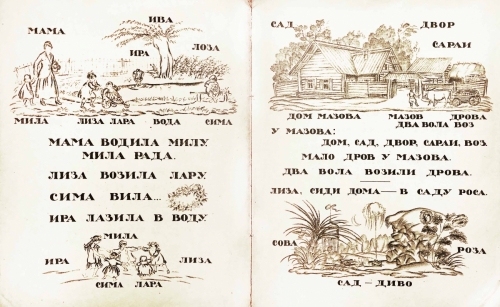 ИВА
МАМА
ИРА
ЛОЗА
МИЛА ЛИЗА ЛАРА ВОДА СИМА
МАМА ВОДИЛА МИЛУ
МИЛА РАДА.
ЛИЗА ВОЗИЛА ЛАРУ.
СИМА ВИЛА...
ИРА ЛАЗИЛА В ВОДУ.
МИЛА
ИРА
ЛИЗА
СИМА ЛАРА
САД ДВОР
САРАИ
ДОМ МАЗОВА МАЗОВ ДРОВА
ДВА ВОЛА ВОЗ
У МАЗОВА:
ДОМ, САД, ДВОР, САРАИ, ВОЗ.
МАЛО ДРОВ У МАЗОВА.
ДВА ВОЛА ВОЗИЛИ ДРОВА.
ЛИЗА, СИДИ ДОМА — В САДУ РОСА.
СОВА
РОЗА
САД — ДИВО